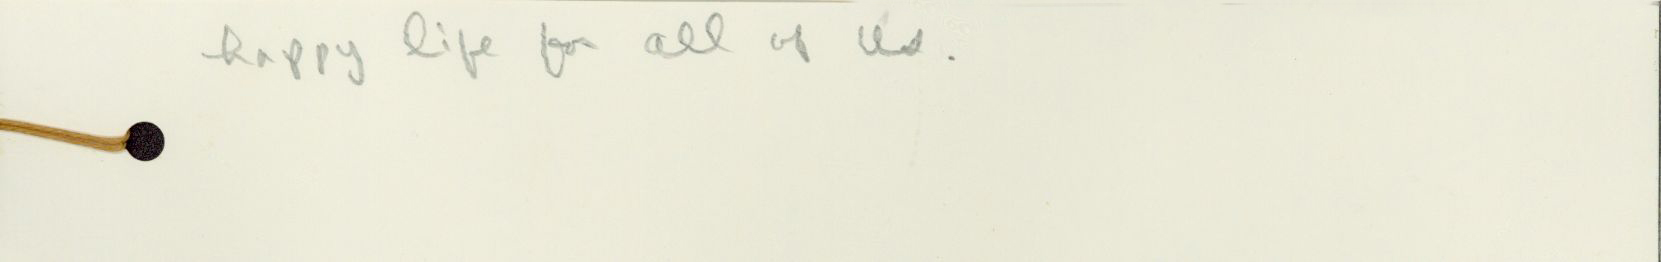 happy life for all of us.